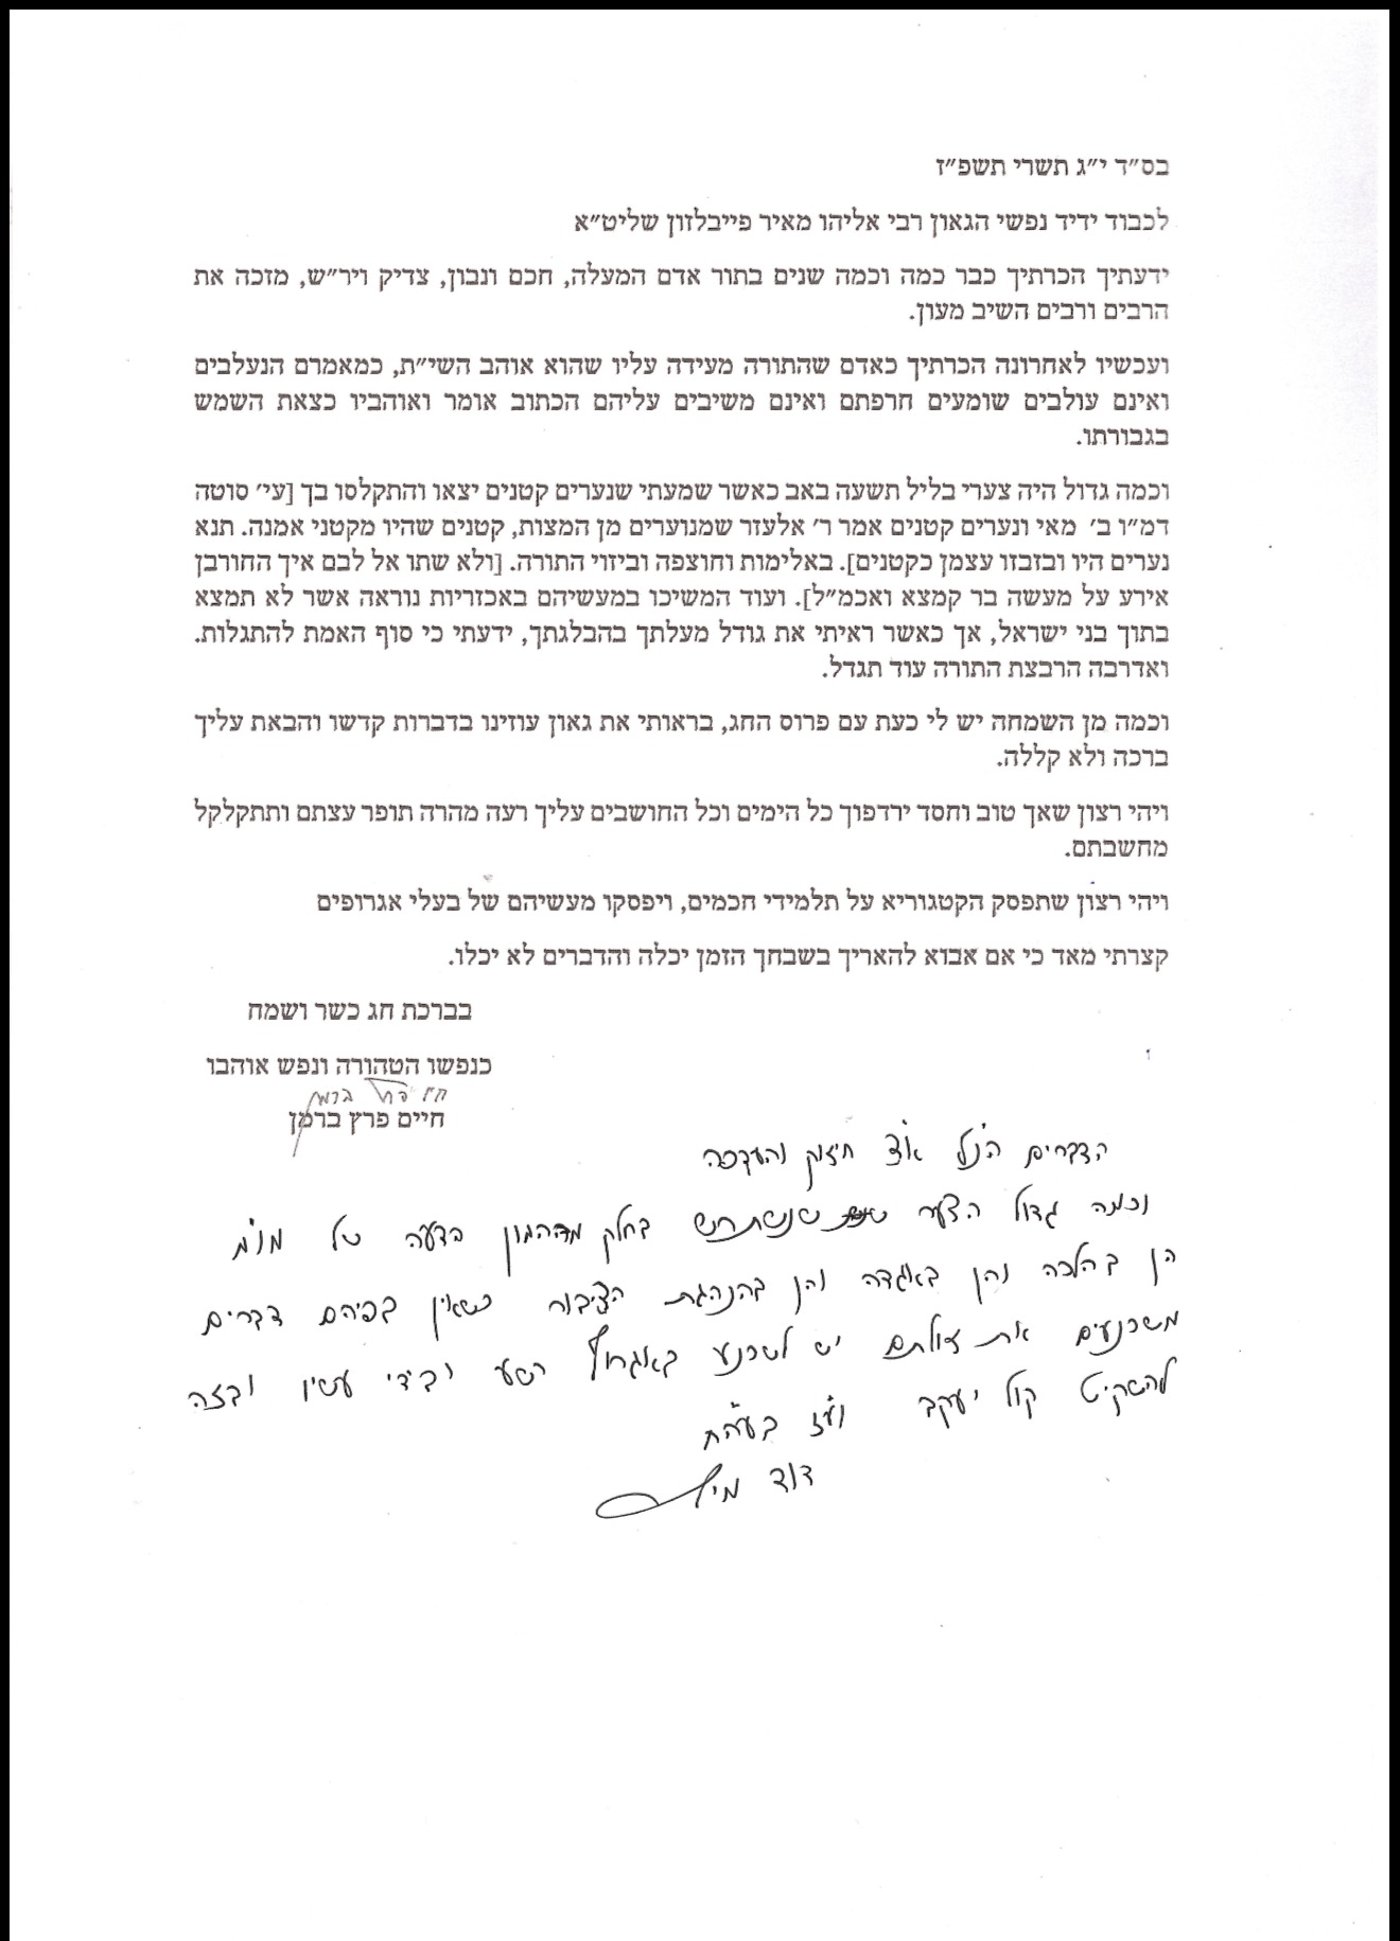 בס״ד י״ג תשרי תשפ״ז
לכבוד ידיד נפשי הגאון רבי אליהו מאיר פייבלזון שליט״א
ידעתיך הכרתיך כבר כמה וכמה שנים בתור אדם המעלה, חכם ונבון, צדיק ויר״ש, מזכה את
הרבים ורבים השיב מעון.
ועכשיו לאחרונה הכרתיך כאדם שהתורה מעידה עליו שהוא אוהב השי״ת, כמאמרם הנעלבים
ואינם עולבים שומעים חרפתם ואינם משיבים עליהם הכתוב אומר ואוהביו כצאת השמש
בגבורתו.
וכמה גדול היה צערי בליל תשעה באב כאשר שמעתי שנערים קטנים יצאו והתקלסו בך [עי׳ סוטה
דמ״ו ב׳ מאי ונערים קטנים אמר ר׳ אלעזר שמנוערים מן המצות, קטנים שהיו מקטני אמנה. תנא
נערים היו ובזבזו עצמן כקטנים]. באלימות וחוצפה וביזוי התורה. [ולא שתו אל לבם איך החורבן
אירע על מעשה בר קמצא ואכמ״ל]. ועוד המשיכו במעשיהם באכזריות נוראה אשר לא תמצא
בתוך בני ישראל, אך כאשר ראיתי את גודל מעלתך בהבלגתך, ידעתי כי סוף האמת להתגלות.
ואדרבה הרבצת התורה עוד תגדל.
וכמה מן השמחה יש לי כעת עם פרוס החג, בראותי את גאון עוזינו בדברות קדשו והבאת עליך
ברכה ולא קללה.
ויהי רצון שאך טוב וחסד ירדפוך כל הימים וכל החושבים עליך רעה מהרה תופר עצתם ותתקלקל
מחשבתם.
ויהי רצון שתפסק הקטגוריא על תלמידי חכמים, ויפסקו מעשיהם של בעלי אגרופים
קצרתי מאד כי אם אבוא להאריך בשבחך הזמן יכלה והדברים לא יכלו.
בברכת חג כשר ושמח
כנפשו הטהורה ונפש אוהבו
חיים פרץ ברמן
חיים פרץ ברמן
הדברים הנ״ל א״צ חיזוק והעדפה
וכמה גדול הצער שנשתרש בחלק מההמון הדעה של
הן בהלכה והן באגדה והן בהנהגת הציבור כשאין בפיהם דברים
משכנעים את זולתם יש לשכנע באגרוף רשע ובידי עשיו ובזה
להשקיט קול יעקב
דוד